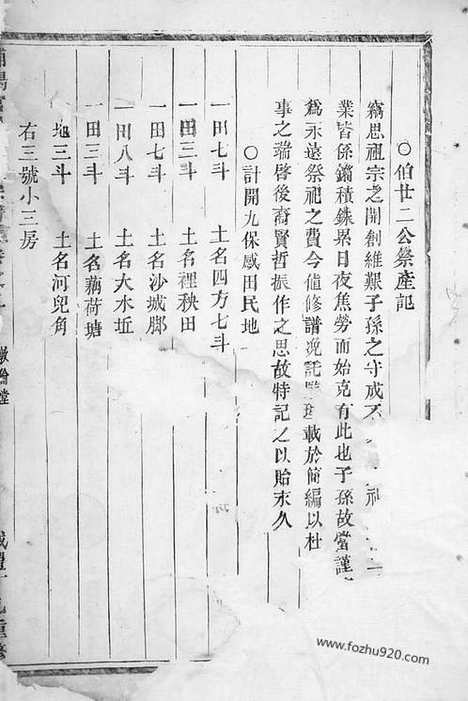 ○伯廿二公祭產記
竊思祖宗之開創維艱子孫之守成不 祀
業皆係錙積銖累日夜焦勞而始克有此也子孫故當謹
爲永遠祭祀之費今値修譜 託 載於簡編以杜
事之端啓後裔賢哲振作之思故特記之以貽末久
○計開九保感田民地
一田七斗 土名四方七斗
一田三斗 土名裡秧田
一田七斗 土名沙城脚
一田八斗 土名大水坵
一田三斗 土名藕荷塘
一地三斗 土名河兒角
右三號小三房
敦倫堂
www.fozhu920.com